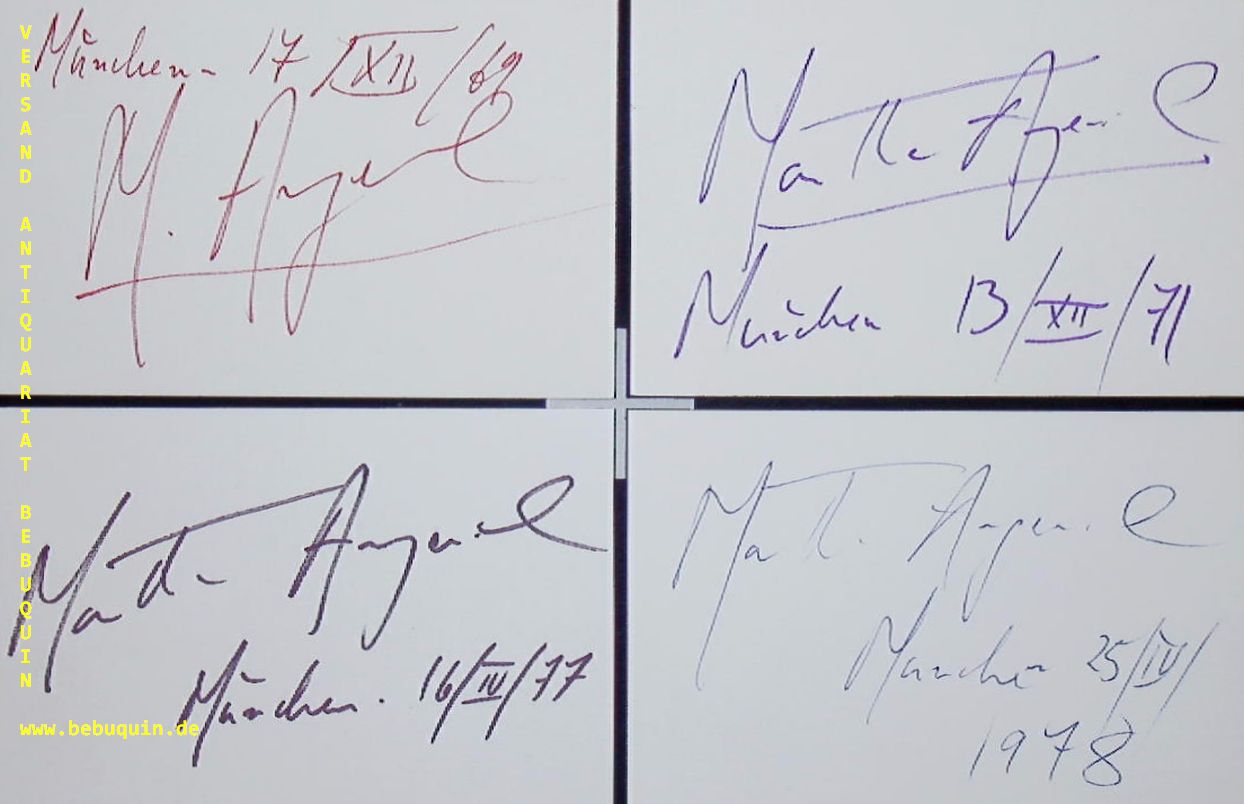 München 17 XII/69
M. Argerich
Martha Argerich
München 13/XII/71
Martha Argerich
München. 16/IV/77
Martha Argerich
München 25/IV/
1978
VERSAND ANTIQUARIAT BEBUQUIN
www.bebuquin.de